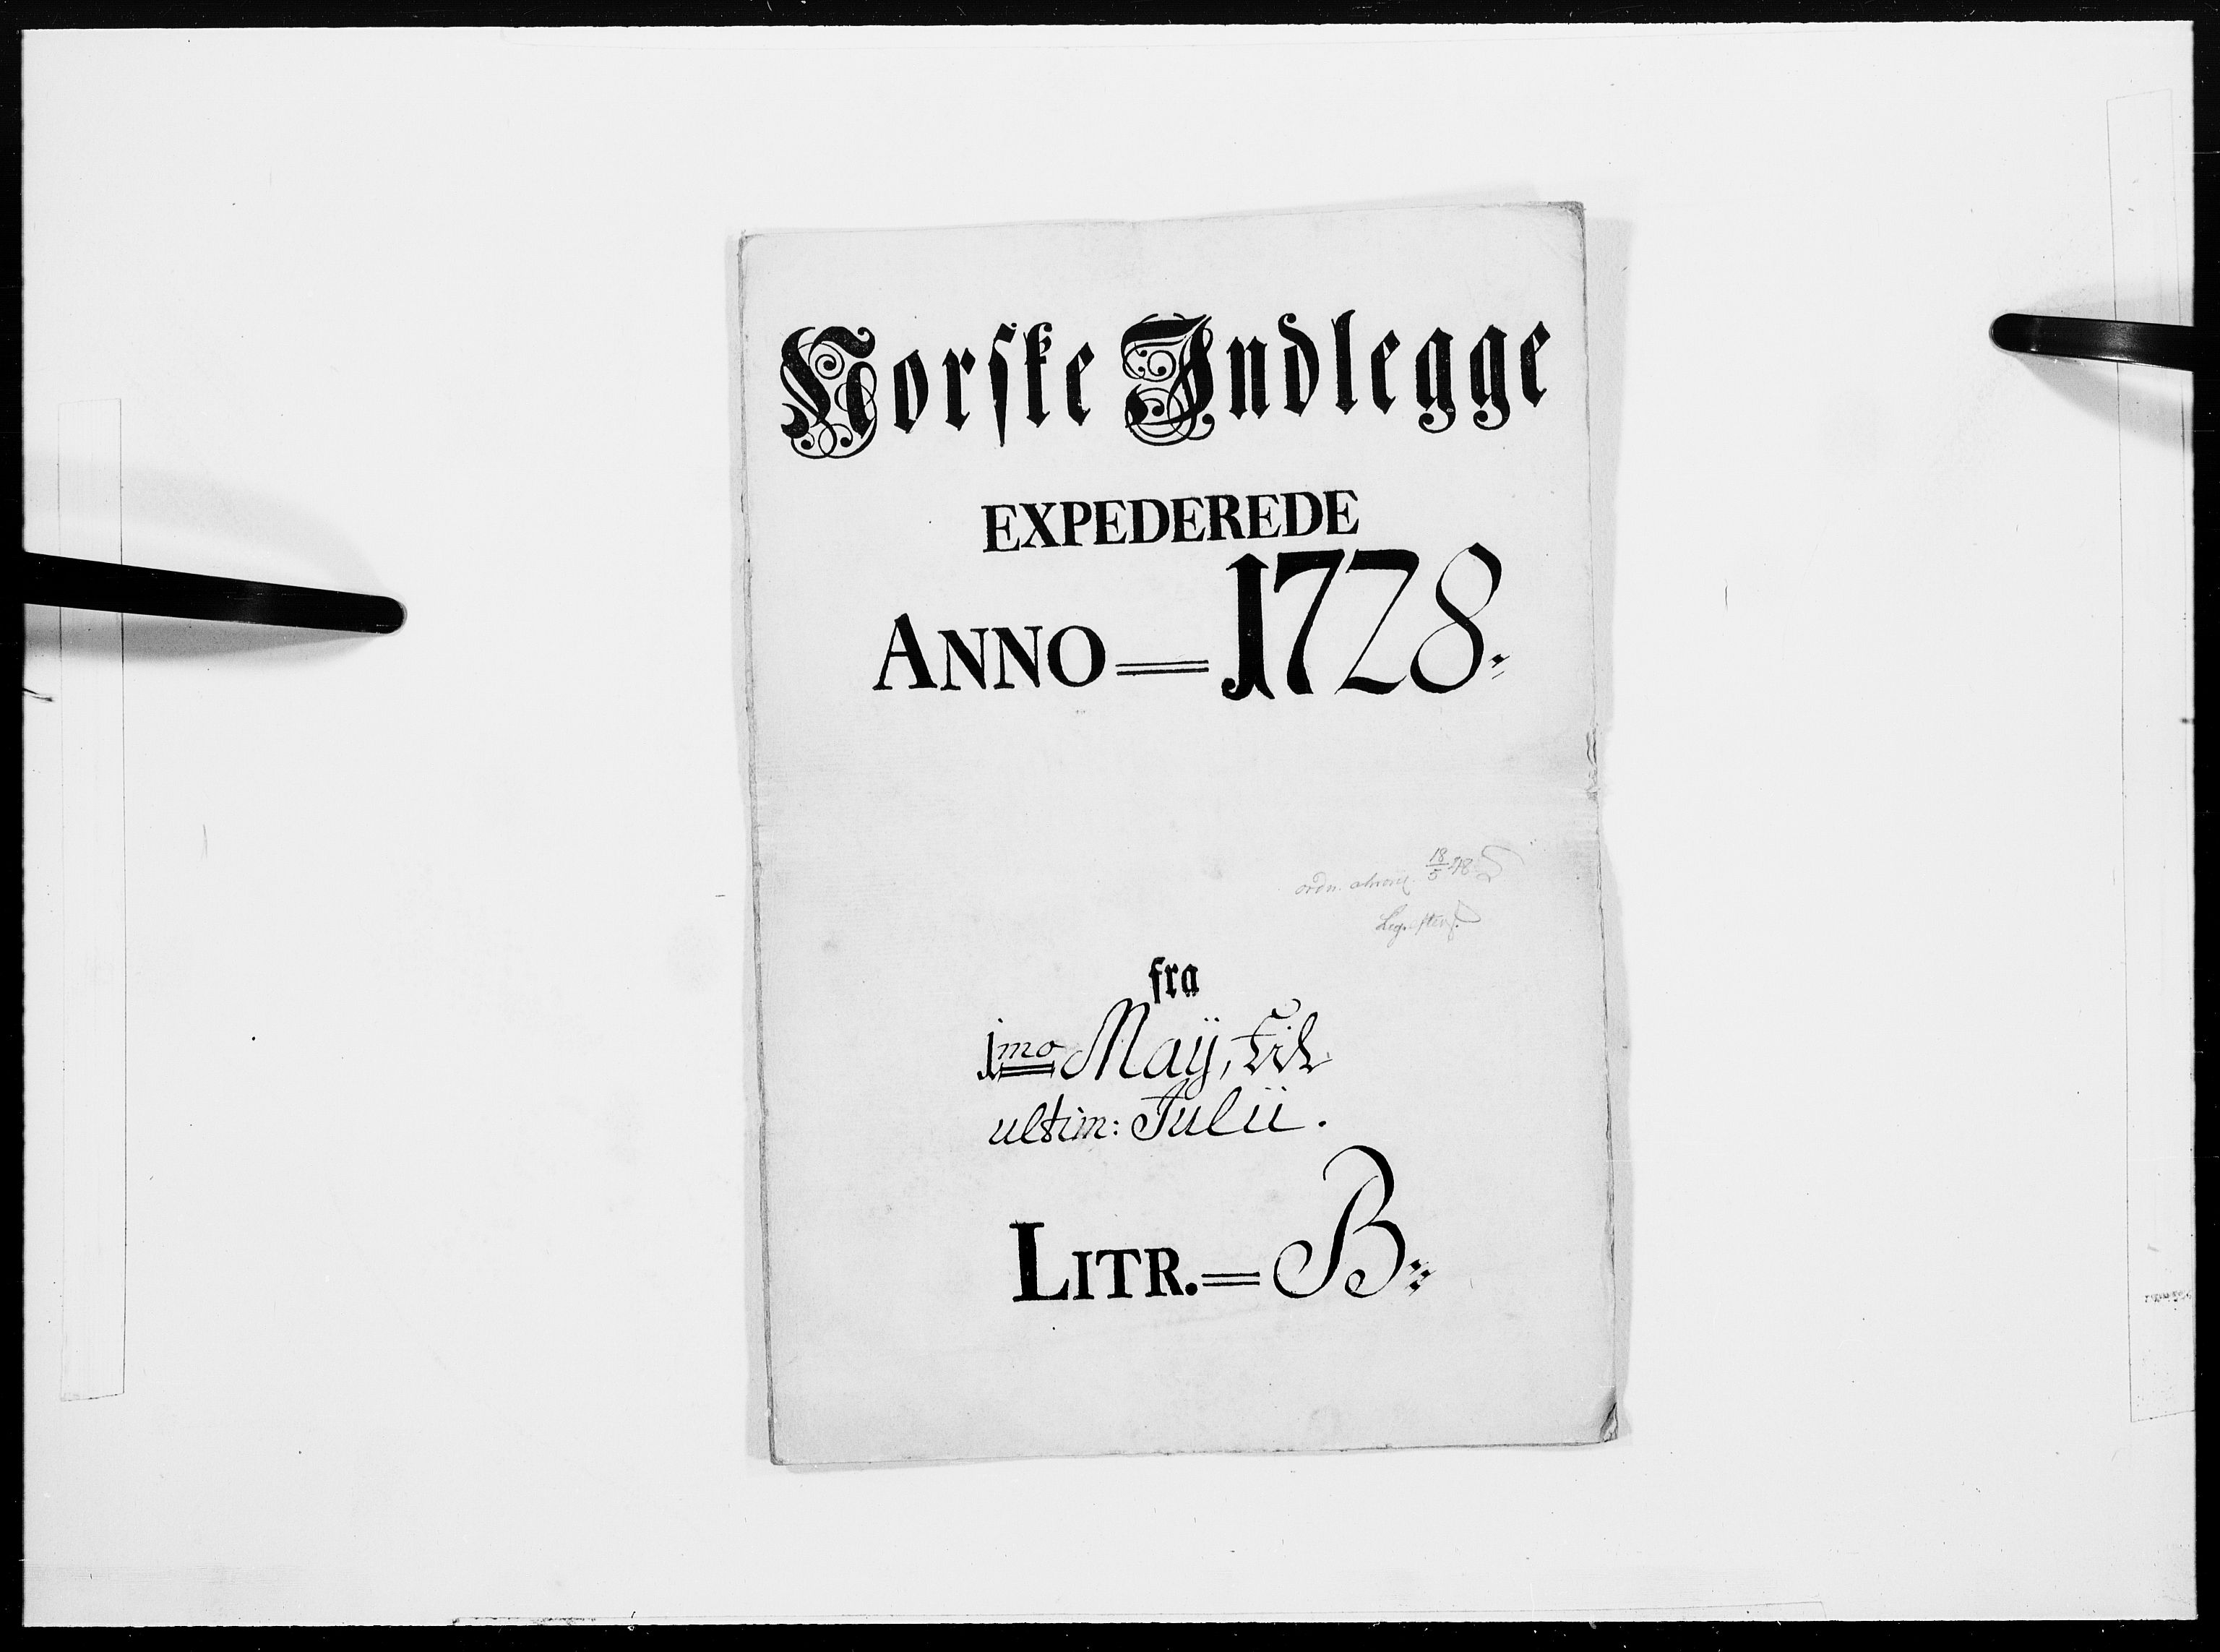 Norske Indlegge
EXPEDEREDE
ANNO = 1728.
ordn. 18/5
fra
1mo Maÿ, til
ultim: Julii.
LITR. = B.